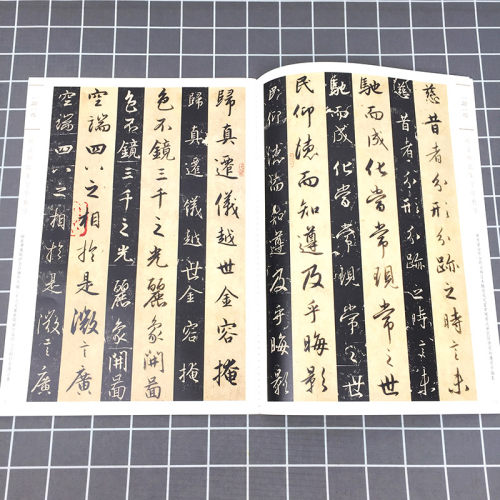 慈昔者分形分跡之時言未
慈昔者分形分跡之時言未
馳而成化當常現常之世
馳而成化當常現常之世
民仰德而知遵及乎晦影
民仰德而知遵及乎晦影
歸真遷儀越世金容掩
歸真遷儀越世金容掩
色不鏡三千之光麗象開圖
色不鏡三千之光麗象開圖
空端四八之相於是微言廣
空端四八之相於是微言廣